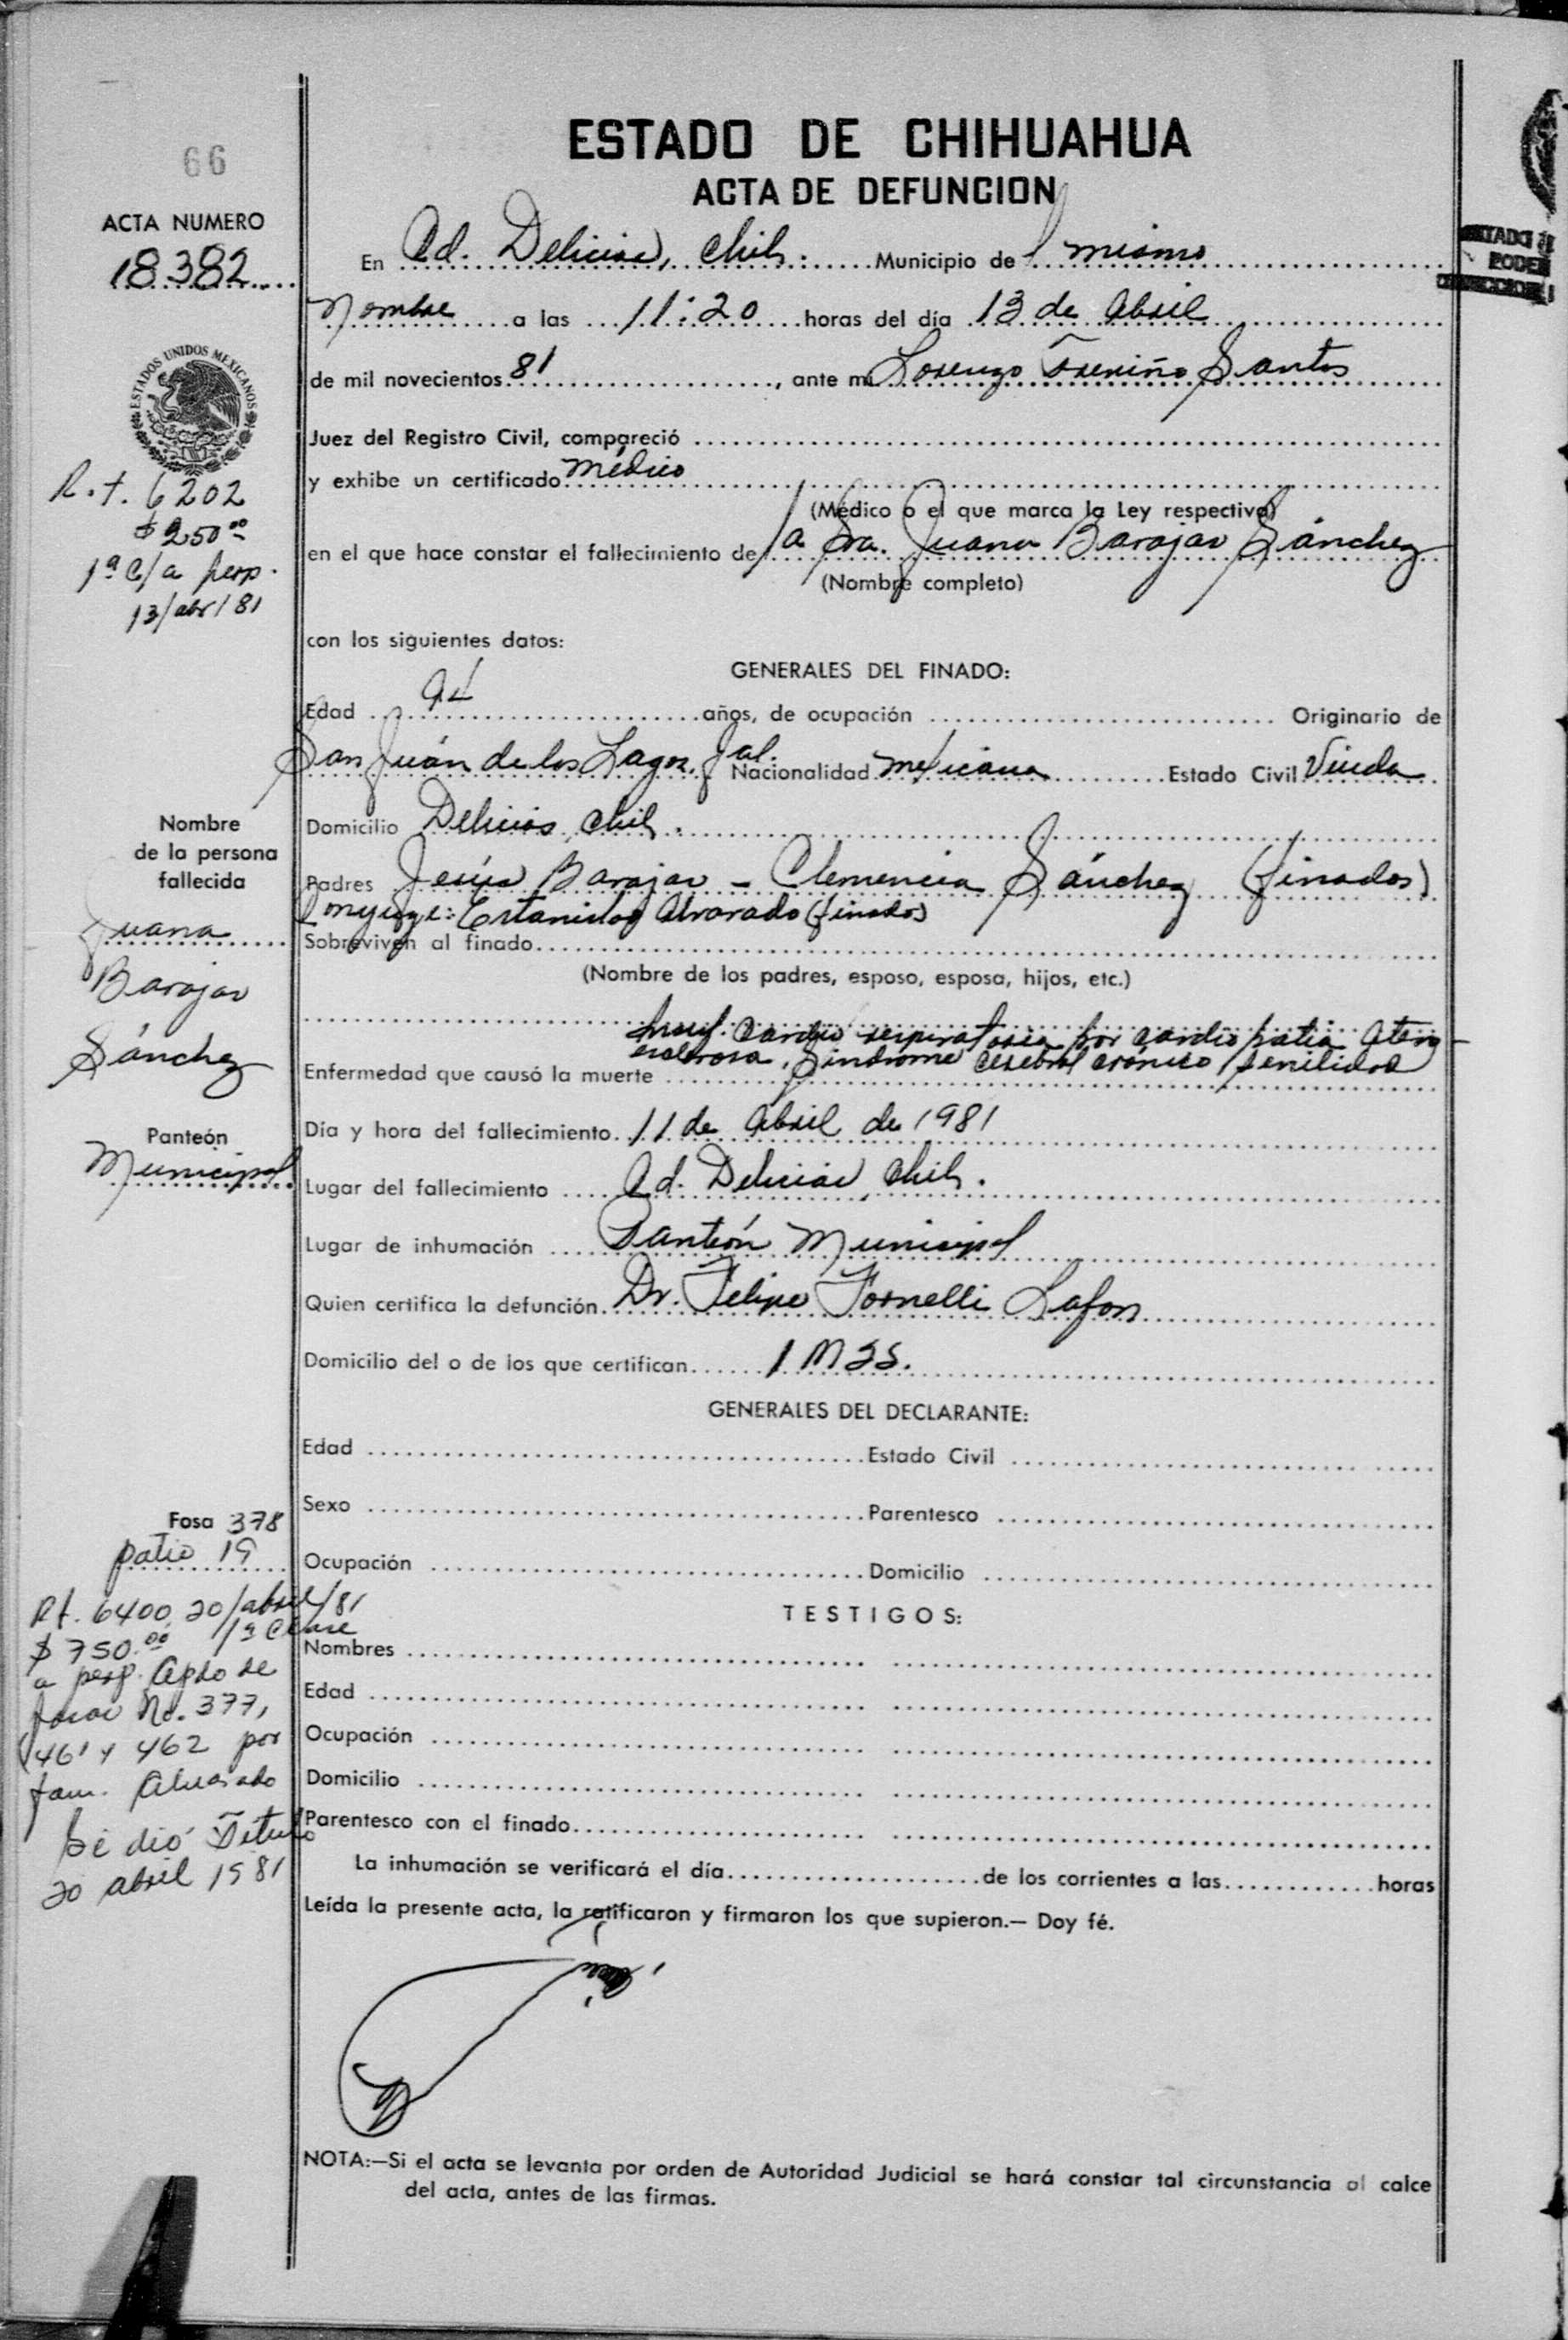 66
ESTADO DE CHIHUAHUA
ACTA DE DEFUNCION
ACTA NUMERO
18.382
En Cd. Delicias, Chih. Municipio de l mismo
Nombre a las 11:20 horas del día 13 de Abril
de mil novecientos 81, ante mí Lorenzo Treviño Santos
Juez del Registro Civil, compareció
y exhibe un certificado Médico
(Médico o el que marca la Ley respectiva)
en el que hace constar el fallecimiento de la Sra. Juana Barajas Sánchez
(Nombre completo)
ESTADOS UNIDOS MEXICANOS
R.t. 6202
$ 250.00
1ª C/a perp.
13/abr/81
con los siguientes datos:
GENERALES DEL FINADO:
Edad años, de ocupación Originario de
San Juán de los Lagos, Jal. Nacionalidad mexicana Estado Civil Viuda
Domicilio Delicias, Chih.
Padres Jesús Barajas - Clemencia Sánchez (finados)
Conyuge: Estanislao Alvarado (finado)
Sobreviven al finado
(Nombre de los padres, esposo, esposa, hijos, etc.)
Insuf. Cardio respiratoria por cardiopatia Atero-
esclerosa, Sindrome Cerebral crónico, senilidad
Enfermedad que causó la muerte
Día y hora del fallecimiento 11 de Abril de 1981
Lugar del fallecimiento Cd. Delicias Chih.
Lugar de inhumación Panteón Municipal
Quien certifica la defunción Dr. Felipe Fornelli Lafon
Domicilio del o de los que certifican IMSS.
Nombre
de la persona
fallecida
Juana
Barajas
Sánchez
Panteón
Municipal
GENERALES DEL DECLARANTE:
Edad Estado Civil
Sexo Parentesco
Ocupación Domicilio
TESTIGOS:
Nombres
Edad
Ocupación
Domicilio
Parentesco con el finado
La inhumación se verificará el día de los corrientes a las horas
Leída la presente acta, la ratificaron y firmaron los que supieron.— Doy fé.
Fosa 378
patio 19
Rt. 6400 20/abril/81
$ 750.00 1ª Clase
a perp. Apdo de
fosas No. 377,
461 y 462 por
fam. Alvarado
Se dió Titulo
20 abril 1981
NOTA:—Si el acta se levanta por orden de Autoridad Judicial se hará constar tal circunstancia al calce
del acta, antes de las firmas.